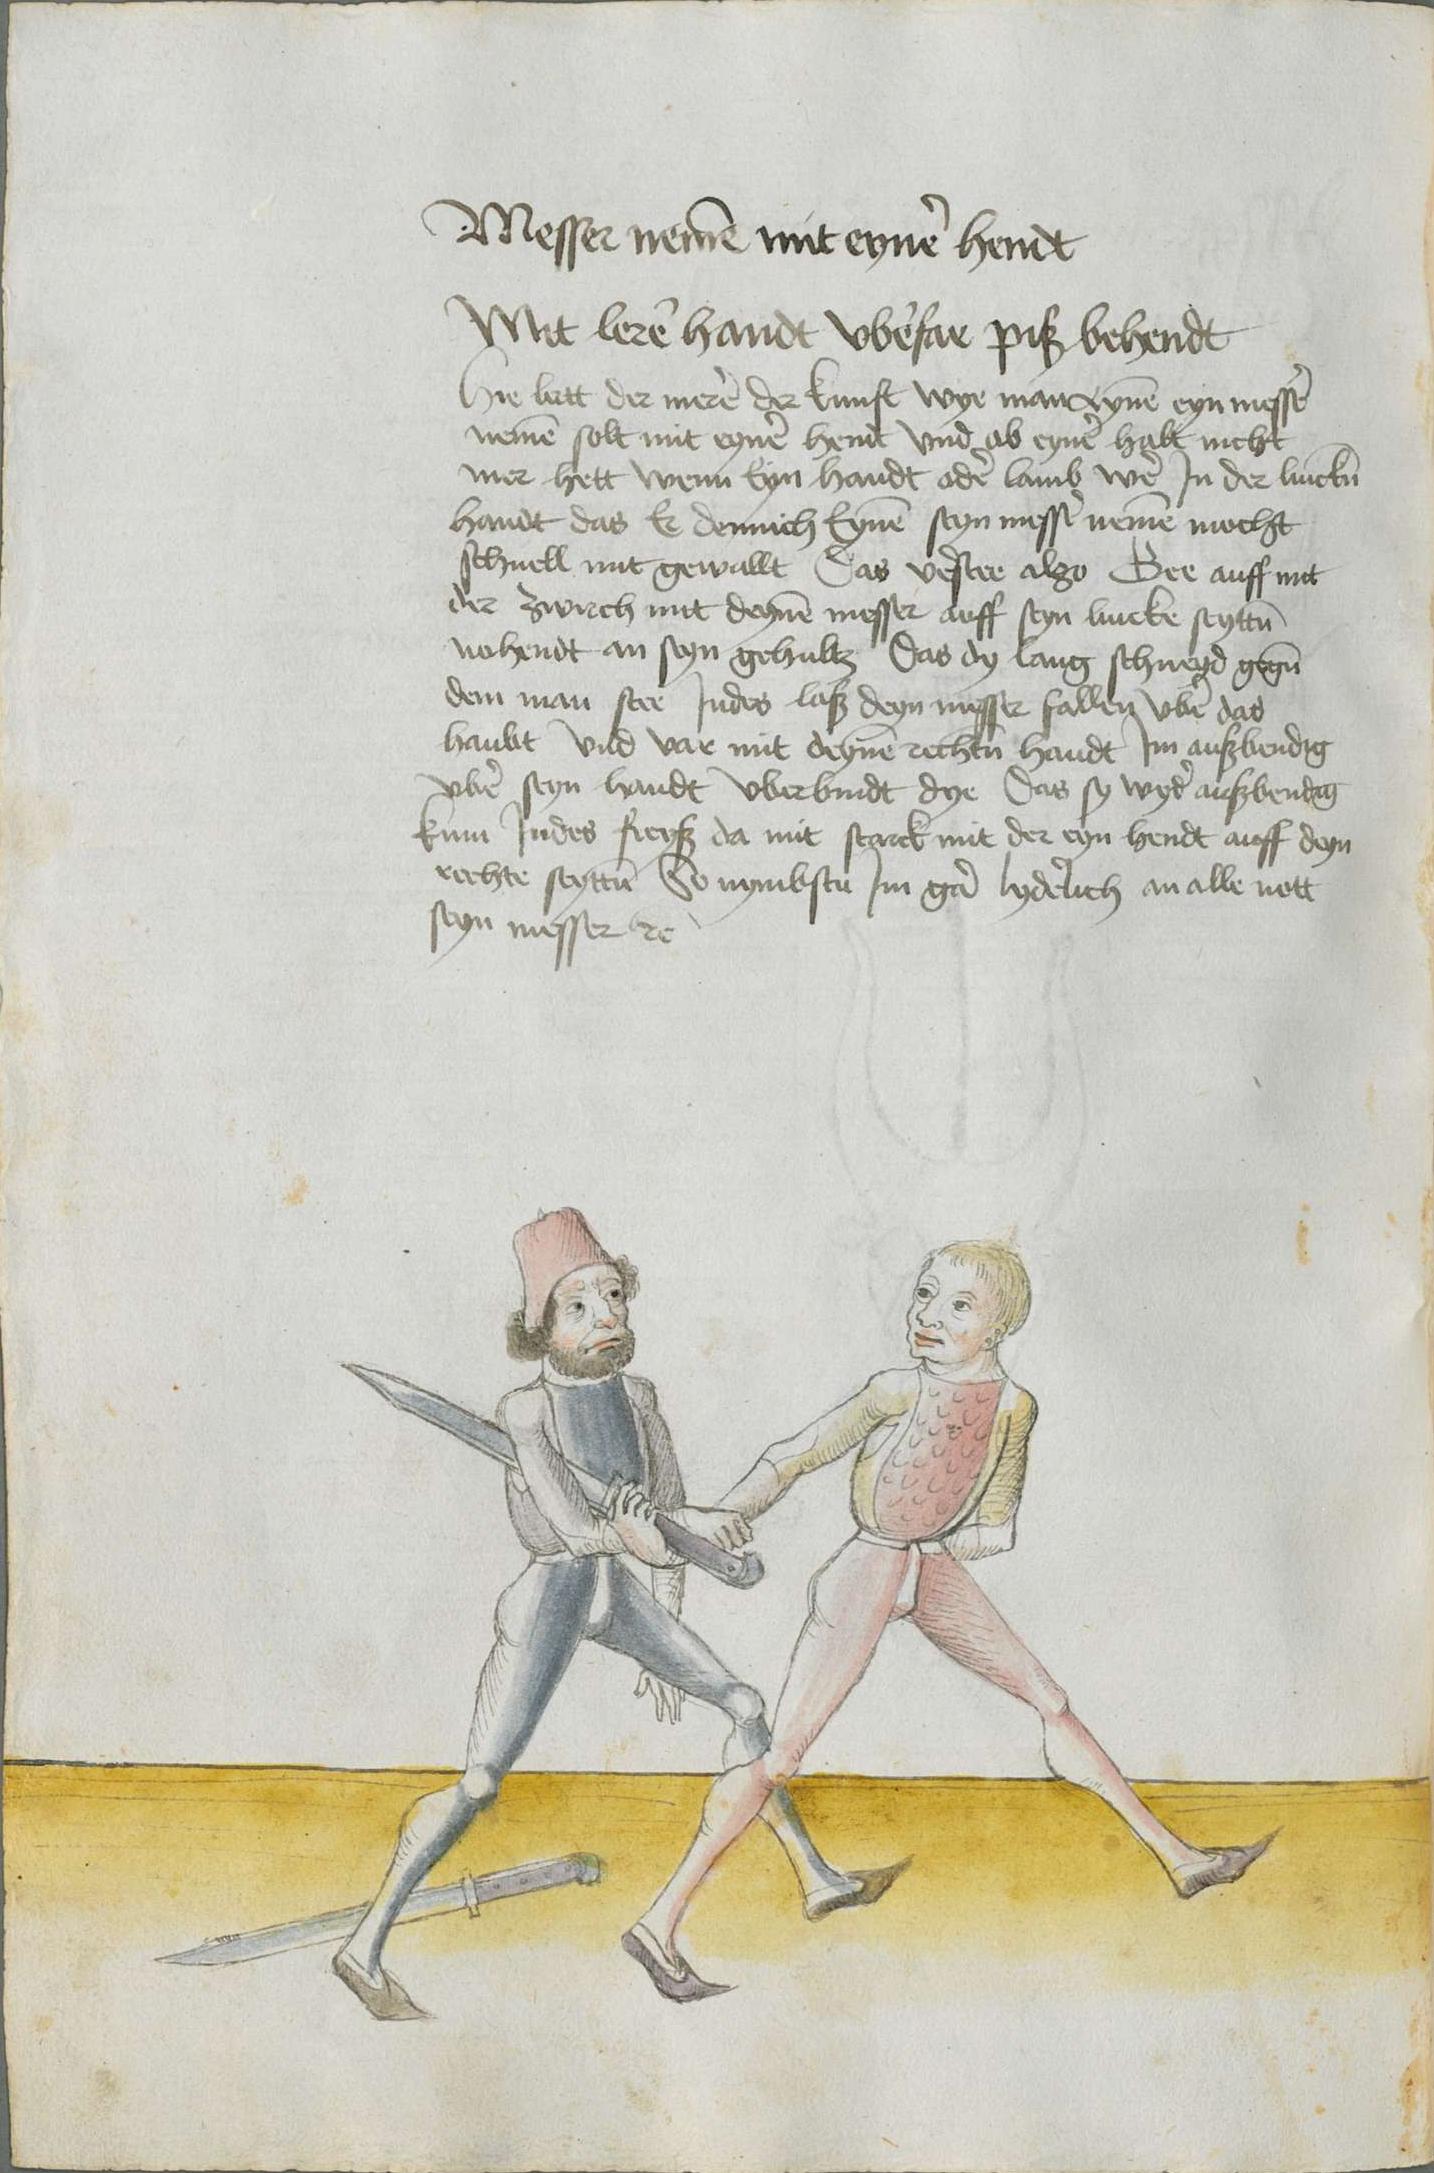 Messer nemē mit eynē hendt
Mit lerē handt vbēfar piß behendt
Hie lertt der merē der kunst wye man eynē eyn messē
nemē solt mit eynē hent vnd ob eynē halt nicht
mer hett wenn Eyn handt odē lamb wē In der linckn̄
handt das Er dennnich Eynē seyn messē nemē mocht
schnell mit gewallt Das vestee alzo Gee auff mit
der Zwirch mit deynē messer auff seyn lincke seyttn̄
nohendt an seyn gehultz Das dy lang schneyd gegn̄
dem man stee Indes laß deyn messer fallen vbē das
haubt vnd var mit deynē rechtn̄ handt Im außbendig
vbē seyn handt vberbindt dye Das sy wydē außbendig
kum Indes reyß da mit starck mit der eyn hendt auff deyn
rechte seyttn̄ So nymbstu Im gar lydēlich an alle nott
seyn messer